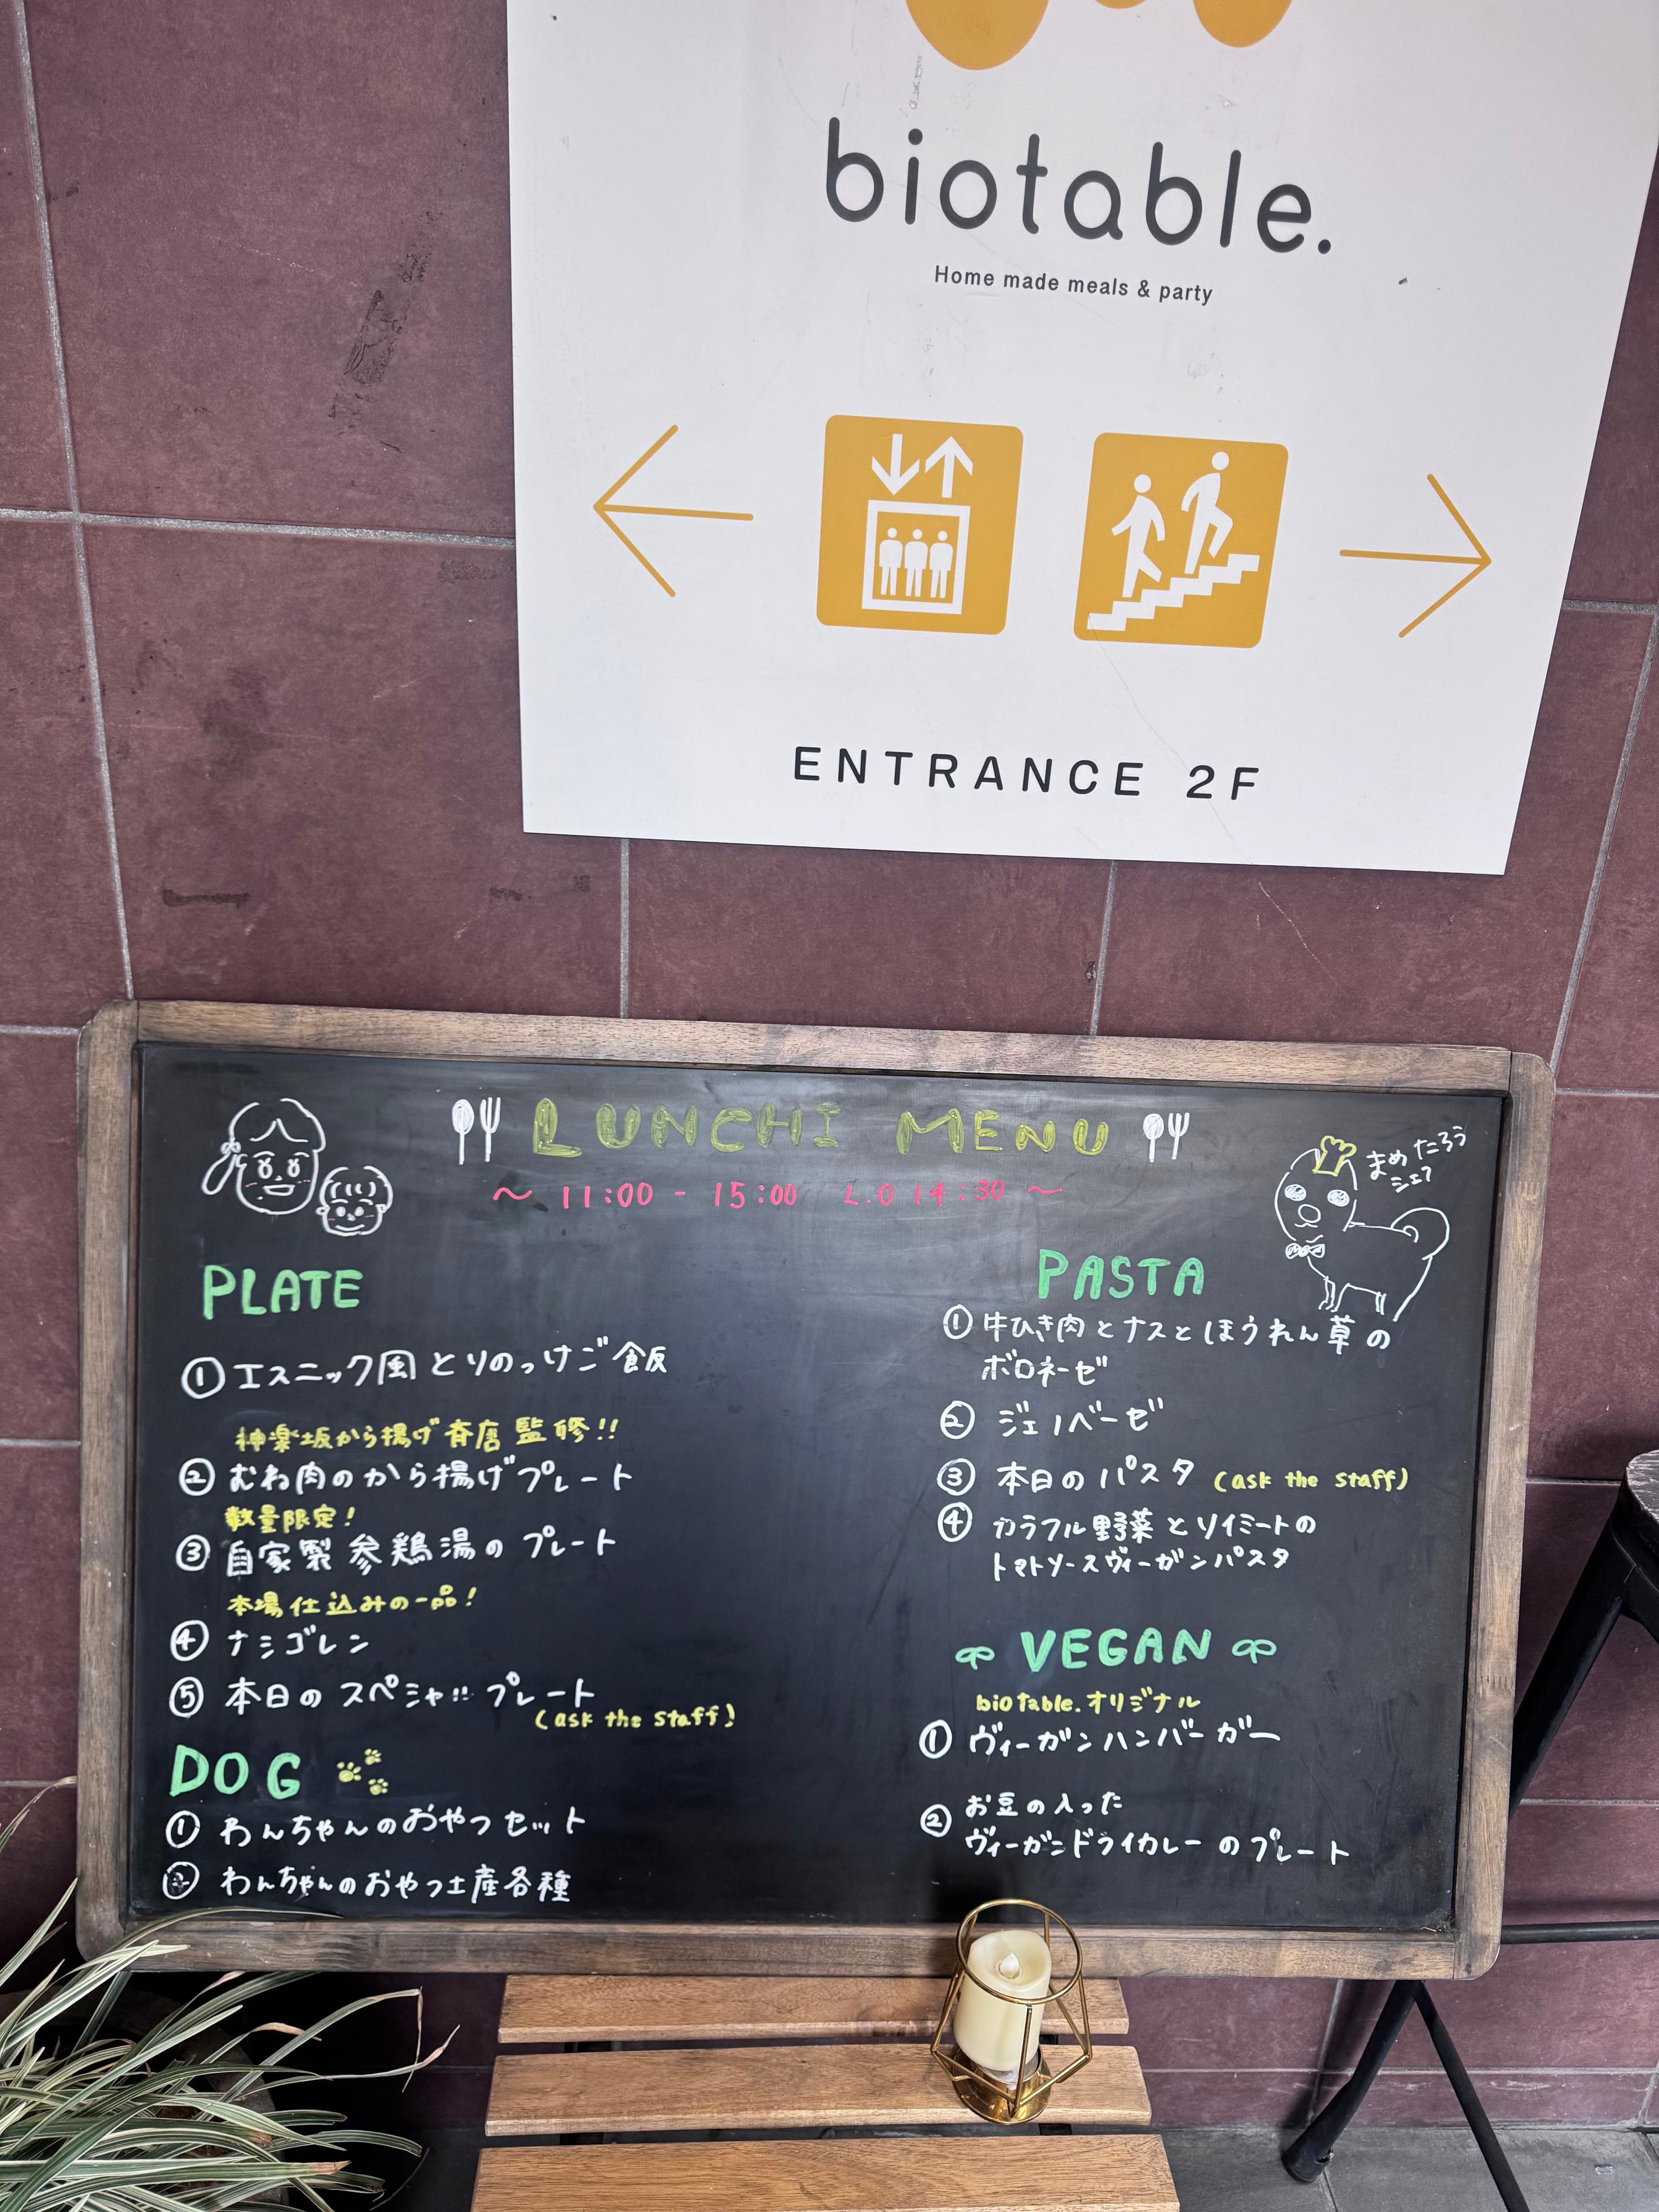 biotable.
Home made meals & party
ENTRANCE 2F
LUNCHI MENU
～ 11:00 - 15:00 L.O 14:30 ～
まめたろう
シェフ
PLATE
① エスニック風とりのっけご飯
神楽坂から揚げ斉唐監修!!
② むね肉のから揚げプレート
数量限定!
③ 自家製参鶏湯のプレート
本場仕込みの一品!
④ ナシゴレン
⑤ 本日のスペシャルプレート
(ask the staff)
DOG
① わんちゃんのおやつセット
② わんちゃんのおやつ土産各種
PASTA
① 牛ひき肉とナスとほうれん草の
ボロネーゼ
② ジェノベーゼ
③ 本日のパスタ (ask the staff)
④ カラフル野菜とソイミートの
トマトソースヴィーガンパスタ
VEGAN
biotable.オリジナル
① ヴィーガンハンバーガー
② お豆の入った
ヴィーガンドライカレーのプレート